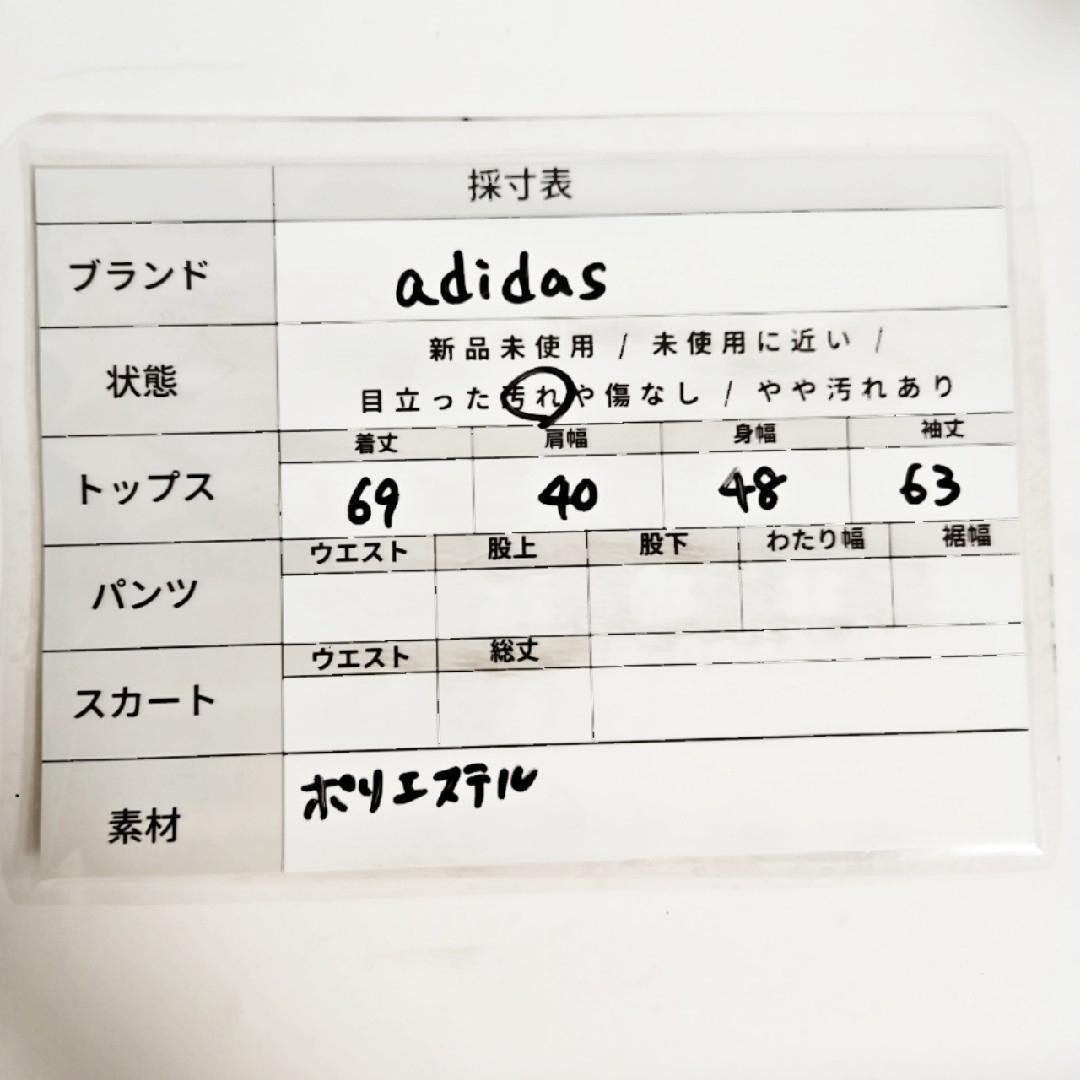 採寸表
ブランド adidas
状態 新品未使用 / 未使用に近い /
目立った汚れや傷なし / やや汚れあり
着丈 肩幅 身幅 袖丈
トップス 69 40 48 63
ウエスト 股上 股下 わたり幅 裾幅
パンツ
ウエスト 総丈
スカート
素材 ポリエステル